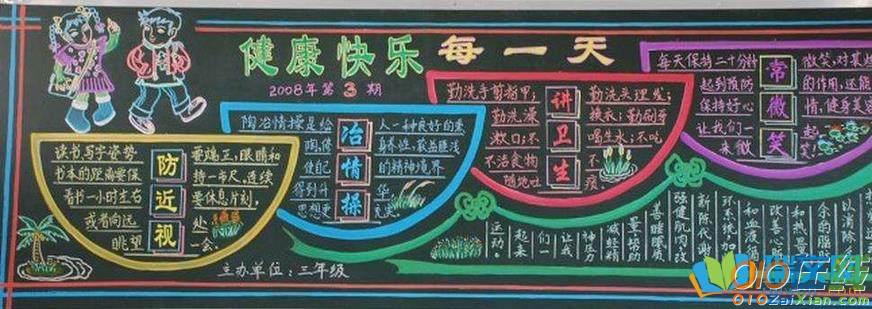 健康快乐每一天
2008年第3期
防近视
读书写字姿势要端正，眼睛和
书本的距离要保持一市尺，连续
看书一小时左右要休息片刻，
或者向远处
眺望一会。
冶情操
陶冶情操是给人一种良好的素
身养性
使自己的精神境界
得到升华
思想更充实
讲卫生
勤洗手剪指甲；勤洗头理发；
勤洗澡换衣；勤刷牙
漱口；不喝生水；不吃
不洁食物不
随地吐痰
常微笑
每天保持二十分钟微笑，对其
起到预防的作用，还能
保持好心情，健身美
让我们一起
来微笑
以消除
余的脂肪
和热量
改善心
和血液循
环系统加
新陈代谢
强健肌肉改
善睡眠质
量帮助
减轻精
神压力
让我
们一
起来
运动。
主办单位：三年级
010在线
010ZaiXian.com